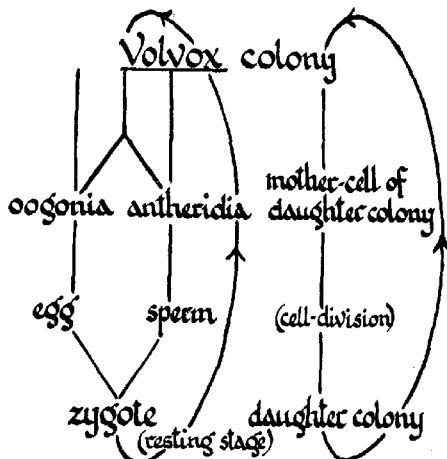 Volvox colony
oogonia antheridia
mother-cell of
daughter colony
egg sperm
(cell-division)
zygote
(resting stage)
daughter colony